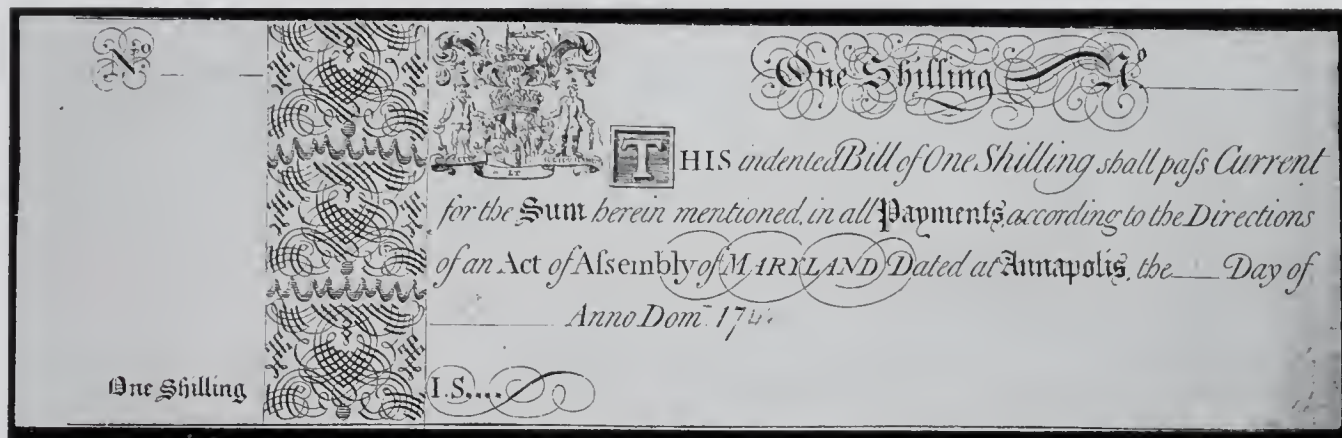 No
One Shilling No
THIS indented Bill of One Shilling shall paſs Current
for the Sum herein mentioned, in all Payments, according to the Directions
of an Act of Aſsembly of MARYLAND Dated at Annapolis, the Day of
Anno Dom. 174
One Shilling
I.S....